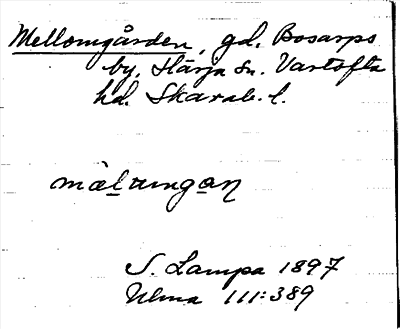 Mellomgården, gd. Bosarps
by, Härja sn. Vartofta
hd. Skarab. l.
mæl ungan
S. Lampa 1897
Ulma 111:389